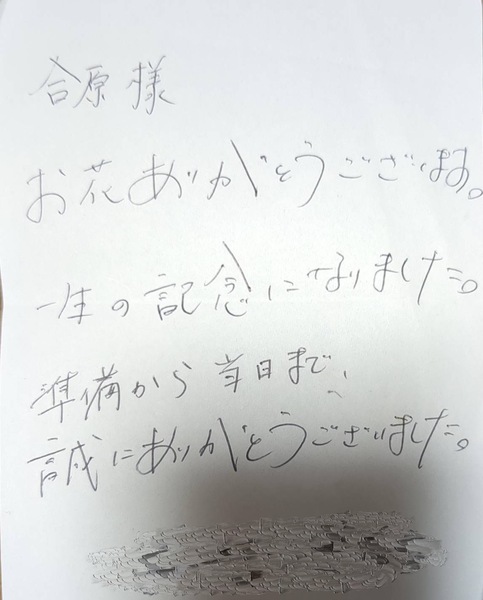 合原様
お花ありがとうございます。
一生の記念になりました。
準備から当日まで、
誠にありがとうございました。